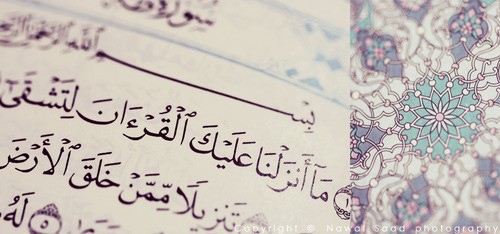 سُورَةُ
بِسۡمِ ٱللَّهِ ٱلرَّحۡمَٰنِ
١ مَآ أَنزَلۡنَا عَلَيۡكَ ٱلۡقُرۡءَانَ لِتَشۡقَىٰٓ
تَنزِيلٗا مِّمَّنۡ خَلَقَ ٱلۡأَرۡضَ
٥ لَهُۥ
Copyright © Nawal Saad photography